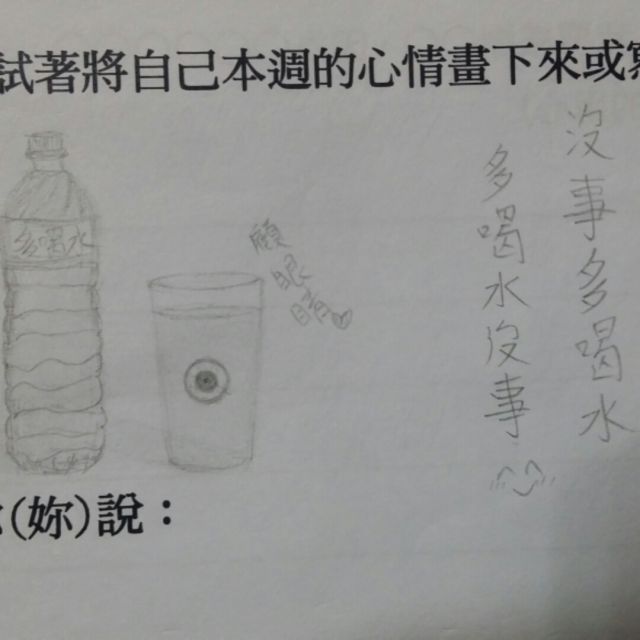 試著將自己本週的心情畫下來或寫
沒事多喝水
多喝水沒事
多喝水
眼睛
(妳)說：